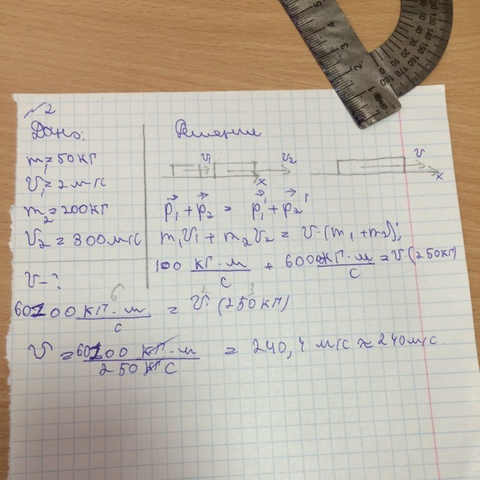 №2
Дано:
Решение
m₁=50кг
V₁=2м/с
m₂=200кг
V₂=300м/с
V-?
V₁ V₂ x
V x
p₁+p₂ = p₁'+p₂'
m₁V₁ + m₂V₂ = V·(m₁+m₂);
100 кг·м/с + 60000 кг·м/с = V(250кг)
60100 кг·м/с = V·(250кг)
V = 60100 кг·м / 250кг с = 240,4 м/с ≈ 240м/с.